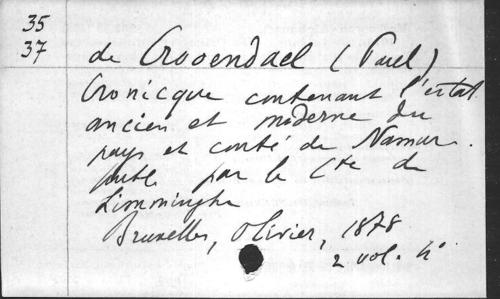 35
37
de Crooendael (Paul)
Cronicque contenant l'estat
ancien et moderne du
pays et conté de Namur.
publ par le Cte de
Limminghe
Bruxelles, Olivier, 1878
2 vol. 4°